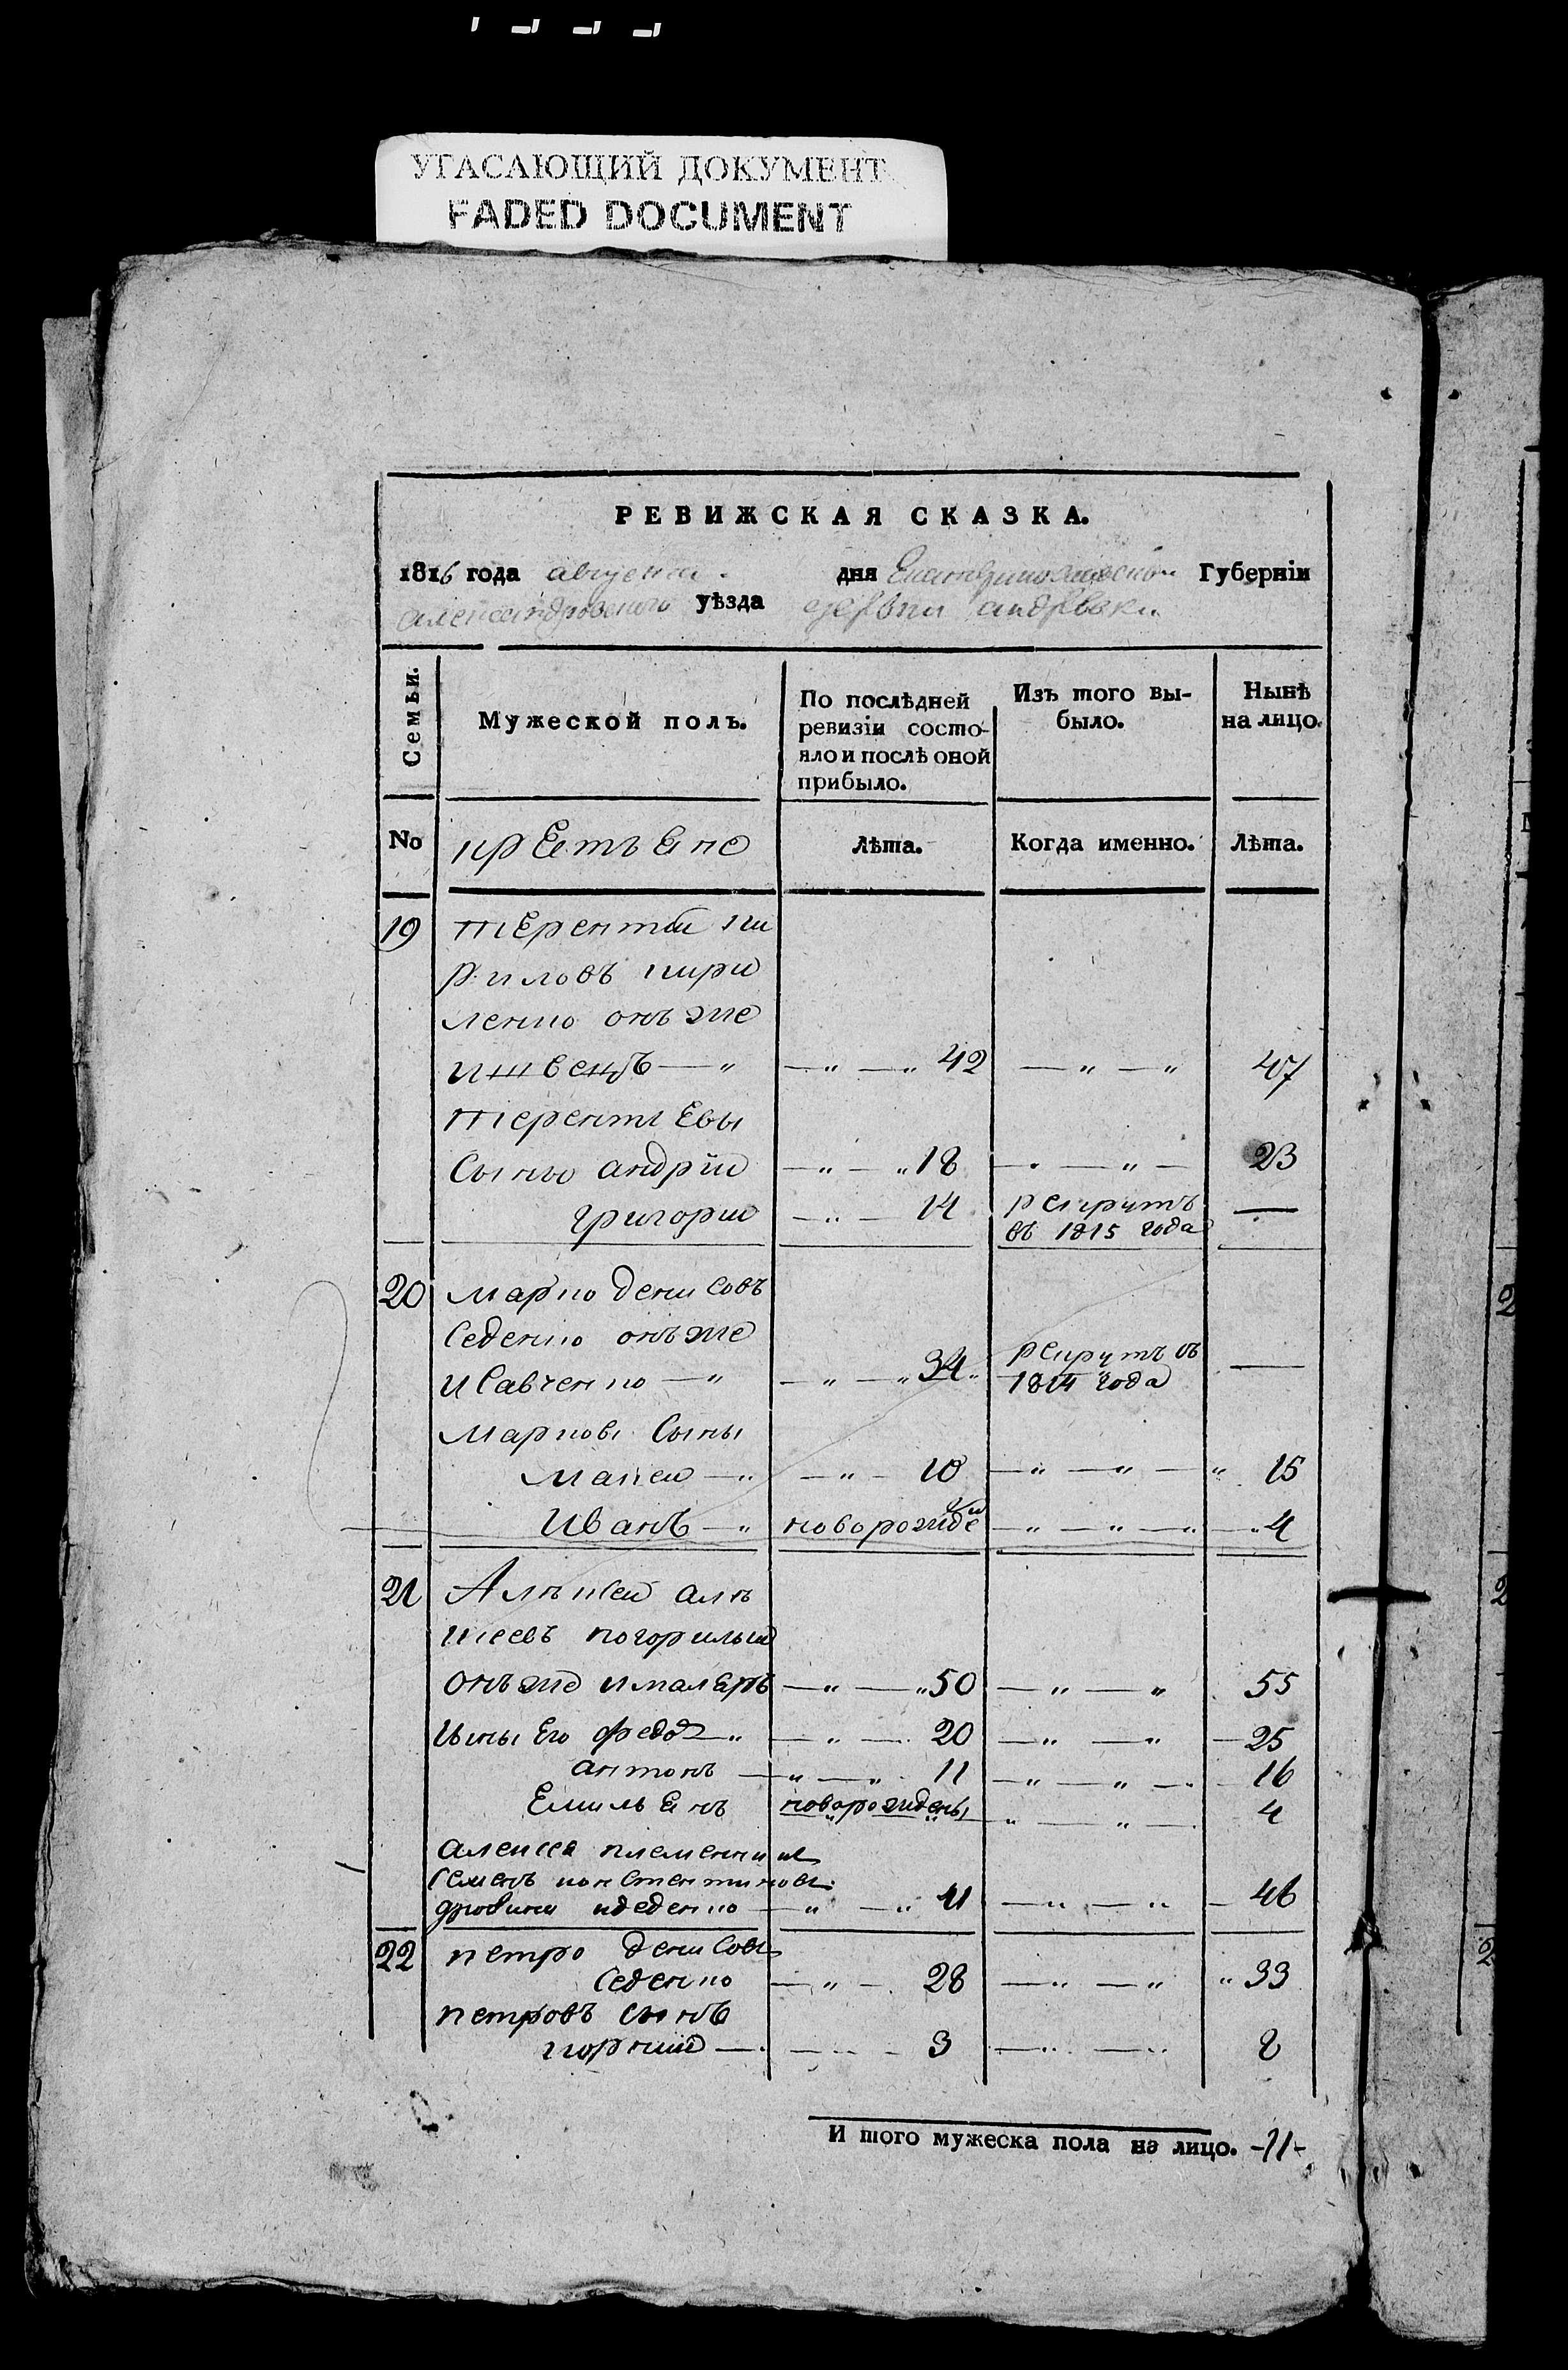 УГАСАЮЩИЙ ДОКУМЕНТ
FADED DOCUMENT
РЕВИЖСКАЯ СКАЗКА.
1816 года августа дня Екатеринославской Губерніи
александровского уѣзда деревни андреевки
Семьи.
Мужеской полъ.
По послѣдней ревизіи состо-
яло и послѣ оной
прибыло.
Изъ того вы-
было.
Нынѣ
на лицо.
No крестьяне Лѣта. Когда именно. Лѣта.
19 терентий ки
риловъ кири
ленко онъ же
ишвецъ 42 47
терентьевы
сыны андрiй 18 23
григорий 14 рекрутъ —
въ 1815 года
20 марко денисовъ
седенко онъ же
исавченко 34 рекрутъ въ —
1814 года
марковы сыны
мокей 10 15
Иванъ новорожде 4
21 Алъксей алъ
ксеевъ погорилый
онъ же ималяръ 50 55
сыны его федоръ 20 25
антонъ 11 16
Емильянъ новорожденый 4
алексея племенник
семенъ константиновъ
дедденко 41 46
22 петро денисовъ
седенко 28 33
петровъ сынъ
корний 3 8
И того мужеска пола на лицо. -11-